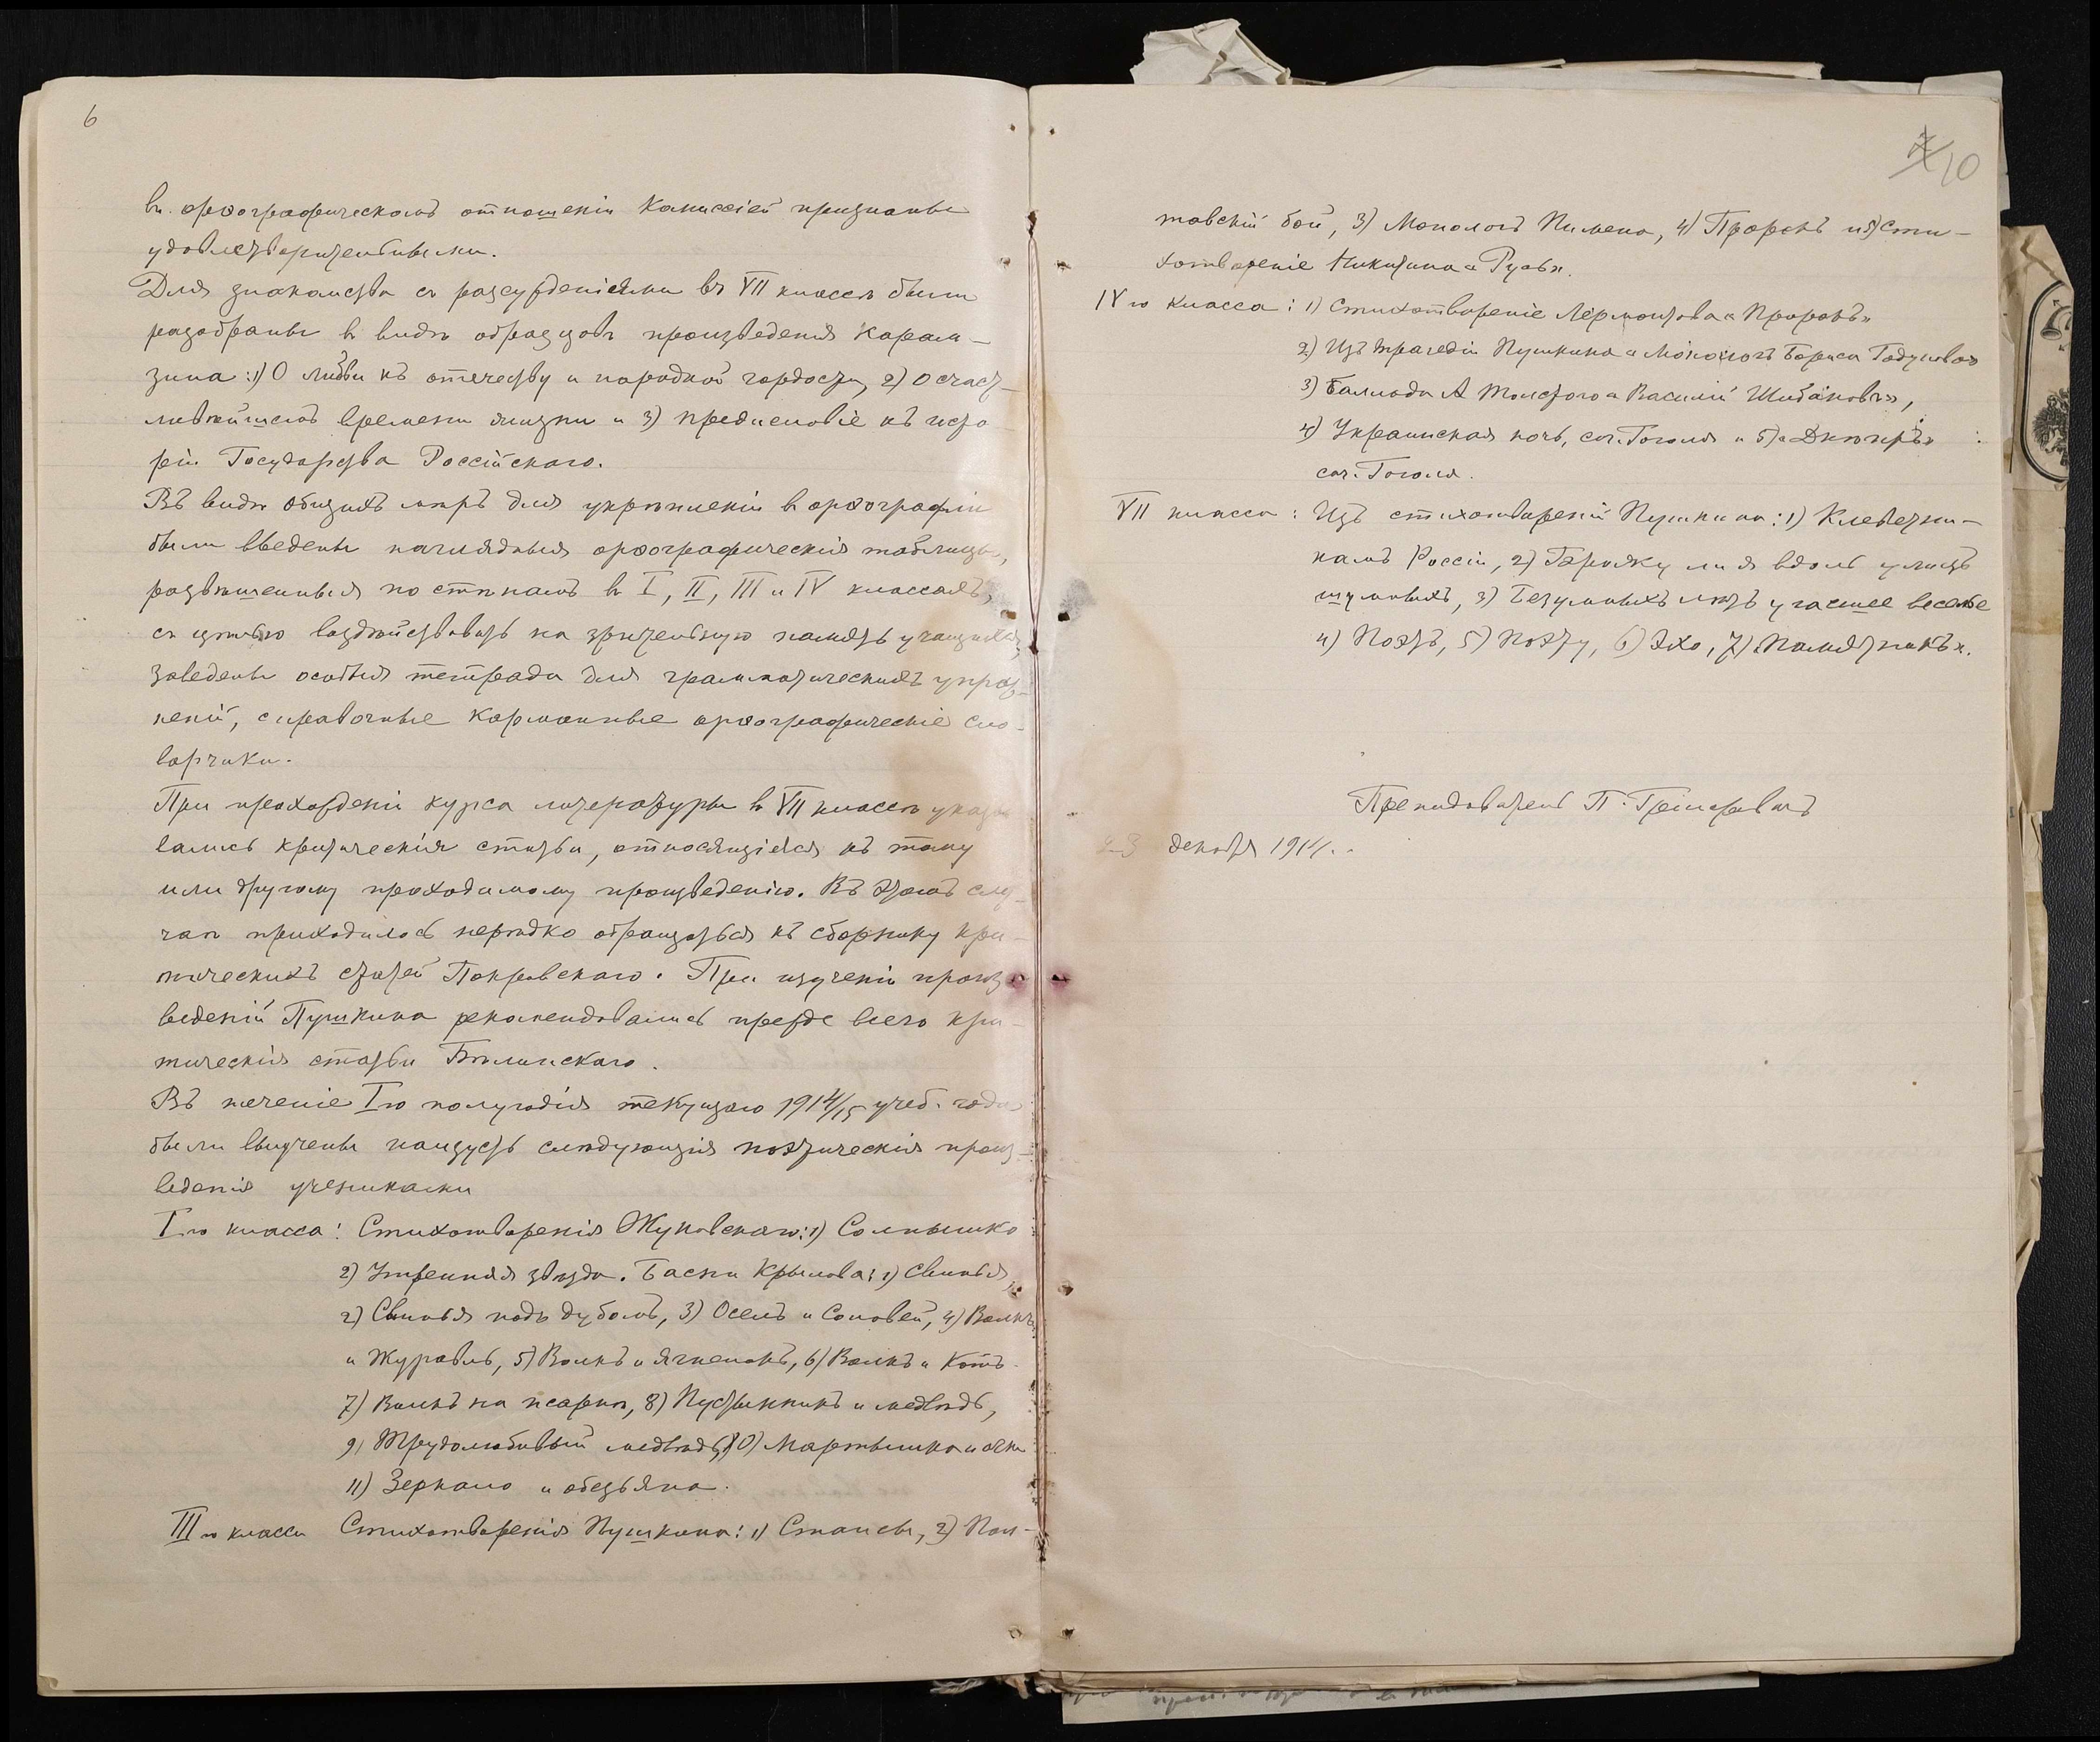 6
въ орѳографическомъ отношеніи Комиссіей признаны
удовлетворительными.
Для знакомства съ разсужденіями въ VII классѣ были
разобраны въ видѣ образцовъ произведенія Карам-
зина: 1) О любви къ отечеству и народной гордости, 2) О счаст-
ливѣйшемъ времени жизни и 3) предисловіе къ исто
ріи Государства Россійскаго.
Въ видѣ общихъ мѣръ для укрѣпленія въ орѳографіи
были введены наглядныя орѳографическія таблицы,
развѣшенныя по стѣнамъ въ I, II, III и IV классахъ,
съ цѣлью воздѣйствовать на зрительную память учащихся,
заведены особыя тетради для грамматическихъ упраж-
неній, справочные карманные орѳографическіе сло-
варчики.
При прохожденіи курса литературы въ VII классѣ указы
вались критическія статьи, относящіеся къ тому
или другому проходимому произведенію. Въ этомъ слу-
чаѣ приходилось нерѣдко обращаться къ сборнику кри-
тическихъ статей Покровскаго. При изученіи произ
веденій Пушкина рекомендовались прежде всего кри-
тическія статьи Бѣлинскаго.
Въ теченіе I го полугодія текущаго 1914/15 учеб. года
были выучены наизусть слѣдующія поэтическія произ-
веденія учениками
I го класса: Стихотворенія Жуковскаго: 1) Солнышко
2) Утренняя звѣзда. Басни Крылова: 1) Свинья,
2) Свинья подъ дубомъ, 3) Оселъ и Соловей, 4) Волкъ
и Журавль, 5) Волкъ и Ягненокъ, 6) Волкъ и Котъ
7) Волкъ на псарнѣ, 8) Пустынникъ и медвѣдь,
9) Трудолюбивый медвѣдь, 10) Мартышка и очки
11) Зеркало и обезьяна.
III го класса Стихотворенія Пушкина: 1) Стансы, 2) Пол-
10
тавскій бой, 3) Монологъ Пимена, 4) Пророкъ и 5) Сти-
хотвореніе Никитина «Русь».
IV го класса: 1) Стихотвореніе Лермонтова «Пророкъ»
2) Изъ трагедіи Пушкина «Монологъ Бориса Годунова»
3) Баллада А Толстого «Василій Шибановъ»,
4) Украинская ночь, соч. Гоголя и 5) «Днѣпръ»
соч. Гоголя.
VII класса: Изъ стихотвореній Пушкина: 1) Клеветни-
камъ Россіи, 2) Брожу ли я вдоль улицъ
шумныхъ, 3) Безумныхъ лѣтъ угасшее веселье
4) Поэтъ, 5) Поэту, 6) Эхо, 7) «Памятникъ».
Преподаватель П.
23 декабря 1914.